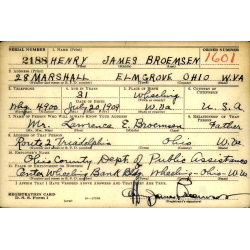 SERIAL NUMBER 1. NAME (Print) ORDER NUMBER
2188 HENRY JAMES BROEMSEN 1601
2. ADDRESS (Print)
28 MARSHALL ELMGROVE OHIO W.VA
3. TELEPHONE 4. AGE IN YEARS 5. PLACE OF BIRTH 6. COUNTRY OF CITIZENSHIP
31 Wheeling
DATE OF BIRTH
Whg. 4900 July 20, 1909 W.Va U.S.A.
7. NAME OF PERSON WHO WILL ALWAYS KNOW YOUR ADDRESS 8. RELATIONSHIP OF THAT PERSON
Mr. Lawrence E. Broemson Father
9. ADDRESS OF THAT PERSON
Route 2 Triadelphia Ohio W.Va
10. EMPLOYER'S NAME
Ohio County Dept. of Public Assistance
11. PLACE OF EMPLOYMENT OR BUSINESS
Center Wheeling Bank Bldg. Wheeling-Ohio-W.Va
I AFFIRM THAT I HAVE VERIFIED ABOVE ANSWERS AND THAT THEY ARE TRUE.
REGISTRATION CARD
D. S. S. Form 1